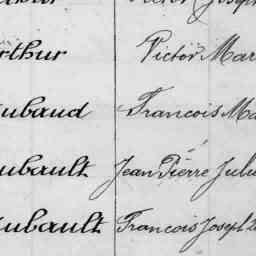 rthur Victor Mar
ubaud Francois Ma
ubault Jean Pierre Jul
ubault Francois Joseph